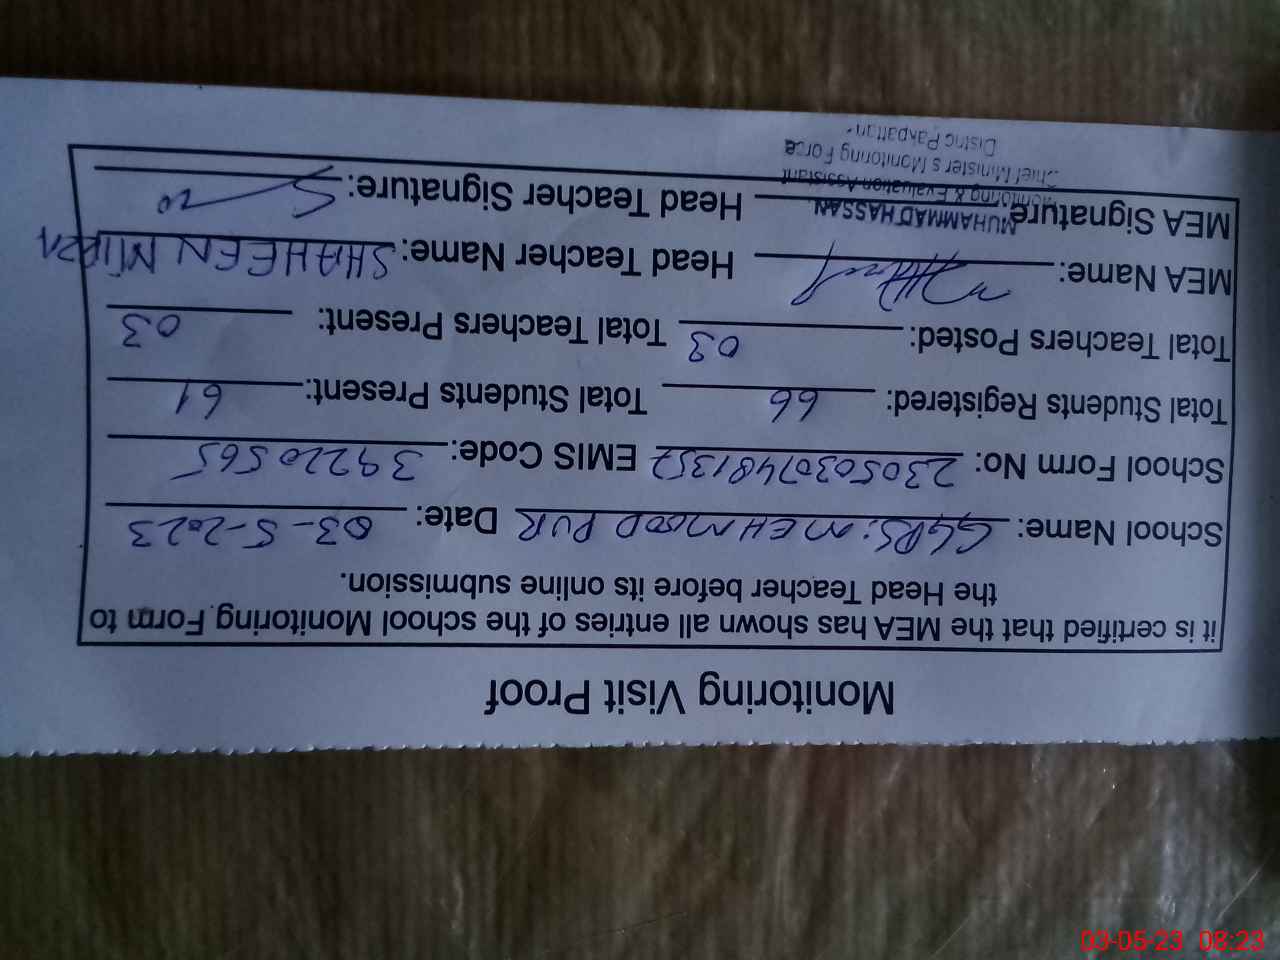 Monitoring Visit Proof
it is certified that the MEA has shown all entries of the school Monitoring Form to
the Head Teacher before its online submission.
School Name: GGPS: MEHMOOD PUR Date: 03-5-2023
School Form No: 23050307481357 EMIS Code: 39220565
Total Students Registered: 66 Total Students Present: 61
Total Teachers Posted: 03 Total Teachers Present: 03
MEA Name: Head Teacher Name: SHAHEEN MIRZA
MEA Signature Head Teacher Signature:
MUHAMMAD HASSAN
Monitoring & Evaluation Assistant
Chief Minister's Monitoring Force
District Pakpattan
03-05-23 08:23